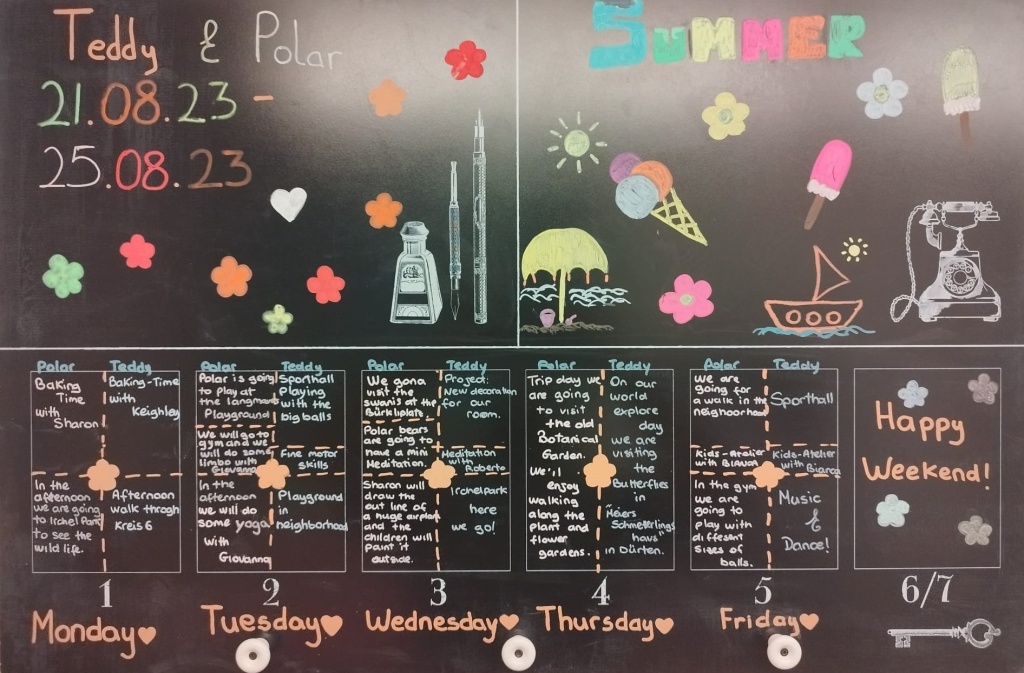 Teddy & Polar
21.08.23 -
25.08.23
SUMMER
Polar
Baking
Time
with
Sharon!
In the
afternoon
we are going
to Irchel Park
to see the
wild life.
Teddy
Baking-Time
with
Keighley
Afternoon
walk throgh
Kreis 6
Polar
Polar is going
to play at
the langmauer
Playground
We will go to
gym and we
will do some
limbo with
Giovanna
In the
afternoon
we will do
some yoga
with
Giovanna
Teddy
Sporthall
Playing
with the
big balls
Fine motor
skills
Playground
in
neighborhood
Polar
We gona
visit the
swans at the
Bürkliplatz.
Polar bears
are going to
have a mini
Meditation.
Sharon will
draw the
out line of
a huge airplan
and the
children will
paint it
outside.
Teddy
Project:
New decoration
for our
room.
Meditation
with
Roberto
Irchelpark
here
we go!
Polar
Trip day we
are going
to visit
the old
Botanical
Garden.
We'll
enjoy
walking
along the
plant and
flower
gardens.
Teddy
On our
world
explore
day
we are
visiting
the
Butterflies
in
Meiers
Schmetterlings
haus
in Dürten.
Polar
We are
going for
a walk in the
neighoorhod
Kids-Atelier
with Bianca
In the gym
we are
going to
play with
different
sizes of
balls.
Teddy
Sporthall
Kids-Atelier
with Bianca
Music
&
Dance!
Happy
Weekend!
1
2
3
4
5
6/7
Monday
Tuesday
Wednesday
Thursday
Friday